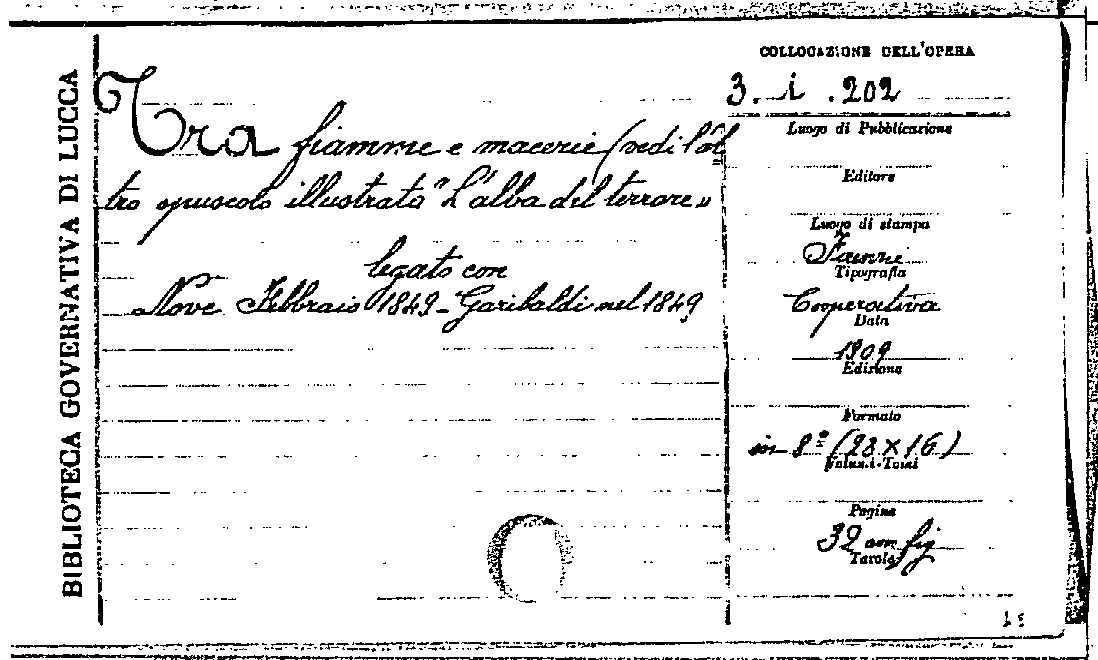 BIBLIOTECA GOVERNATIVA DI LUCCA
Tra fiamme e macerie (vedi l'al
tro opuscolo illustrato "L'alba del terrore"
legato con
Nove Febbraio 1849 - Garibaldi nel 1849
COLLOCAZIONE DELL'OPERA
3. i. 202
Luogo di Pubblicazione
Editore
Luogo di stampa
Firenze
Tipografia
Cooperativa
Data
1909
Edizione
Formato
in 8º (23 X 16)
Volumi-Tomi
Pagine
32 con fig
Tavole